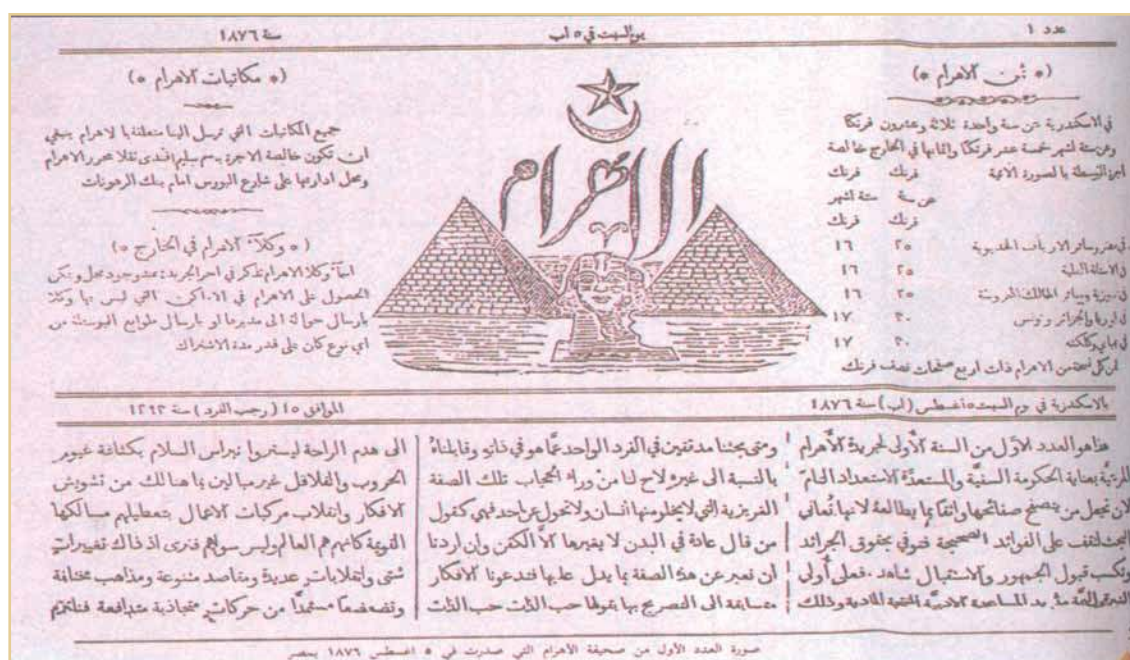 عدد ١
يوم السبت في ٥ اب
سنة ١٨٧٦
(* ثمن الاهرام *)
في الاسكندرية عن سنة واحدة ثلاثة وعشرون فرنكا
وعن ستة اشهر خمسة عشر فرنكا واثمانها في الخارج خالصة
اجرة البوسطة بالصورة الاتية
فرنك فرنك
عن سنة ستة اشهر
فرنك فرنك
في مصر وسائر الارياف الخديوية ٢٥ ١٦
٢٥ ١٦
وسائر الممالك المحروسة ٢٥ ١٦
في اوربا والجزائر وتونس ٣٠ ١٧
في بمباي وكلكته ٣٠ ١٧
ان كل نسخة من الاهرام ذات اربع صفحات نصف فرنك
الاهرام
(* مكاتبات الاهرام *)
جميع المكاتبات التي ترسل الينا متعلقة بالاهرام ينبغي
ان تكون خالصة الاجرة باسم سليم افندي تقلا محرر الاهرام
ومحل ادارتها على شارع البورس امام بنك الرهونات
(* وكلآء الاهرام في الخارج *)
اسمآء وكلا الاهرام تذكر في اخر الجريدة
الحصول على الاهرام في الاماكن التي ليس بها وكلا
بارسال حوالة الى مديرها او بارسال طوابع البوسطة من
اي نوع كان على قدر مدة الاشتراك
بالاسكندرية في يوم السبت ٥ اغسطس (اب) سنة ١٨٧٦
الموافق ١٥ (رجب الفرد) سنة ١٢٩٣
هذا هو العدد الاول من السنة الاولى لجريدة الاهرام
المرئية بعناية الحكومة السنية والمستعدة الاستعداد التام
لان تجعل من يتصفح صفائحها واثقا بما يطالعه لانها تعاني
البحث لتقف على الفوائد الصحيحة فتوفي بحقوق الجرائد
وتكسب قبول الجمهور والاستقبال شاهد . فعلى أولي
ومتى بحثنا مدققين في الفرد الواحد عما هو في ذاته وقابلناه
بالنسبة الى غيره لاح لنا من وراء الحجاب تلك الصفة
الغريزية التي لا يخلو منها انسان ولا تحول عن احد فهي كقول
من قال عادة في البدن لا يغيرها الا الكفن وان اردنا
ان نعبر عن هذه الصفة بما يدل عليها فتدعونا الافكار
متسابقة الى التصريح بها بقولها حب الذات حب الذات
الى هدم الراحة ليستروا نبراس السلام بكثافة غيوم
الحروب والقلاقل غير مبالين بما هنالك من تشويش
الافكار وانقلاب مركبات الاعمال بتعطيلهم مسالكها
القويمة كانهم هم العالم وليس سواهم فنرى اذ ذاك تغييرات
شتى وانقلابات عديدة ومقاصد متنوعة ومذاهب مختلفة
وتضعضعا مستمدا من حركات متجاذبة متدافعة
صورة العدد الأول من صحيفة الأهرام التي صدرت في ٥ أغسطس ١٨٧٦ بمصر